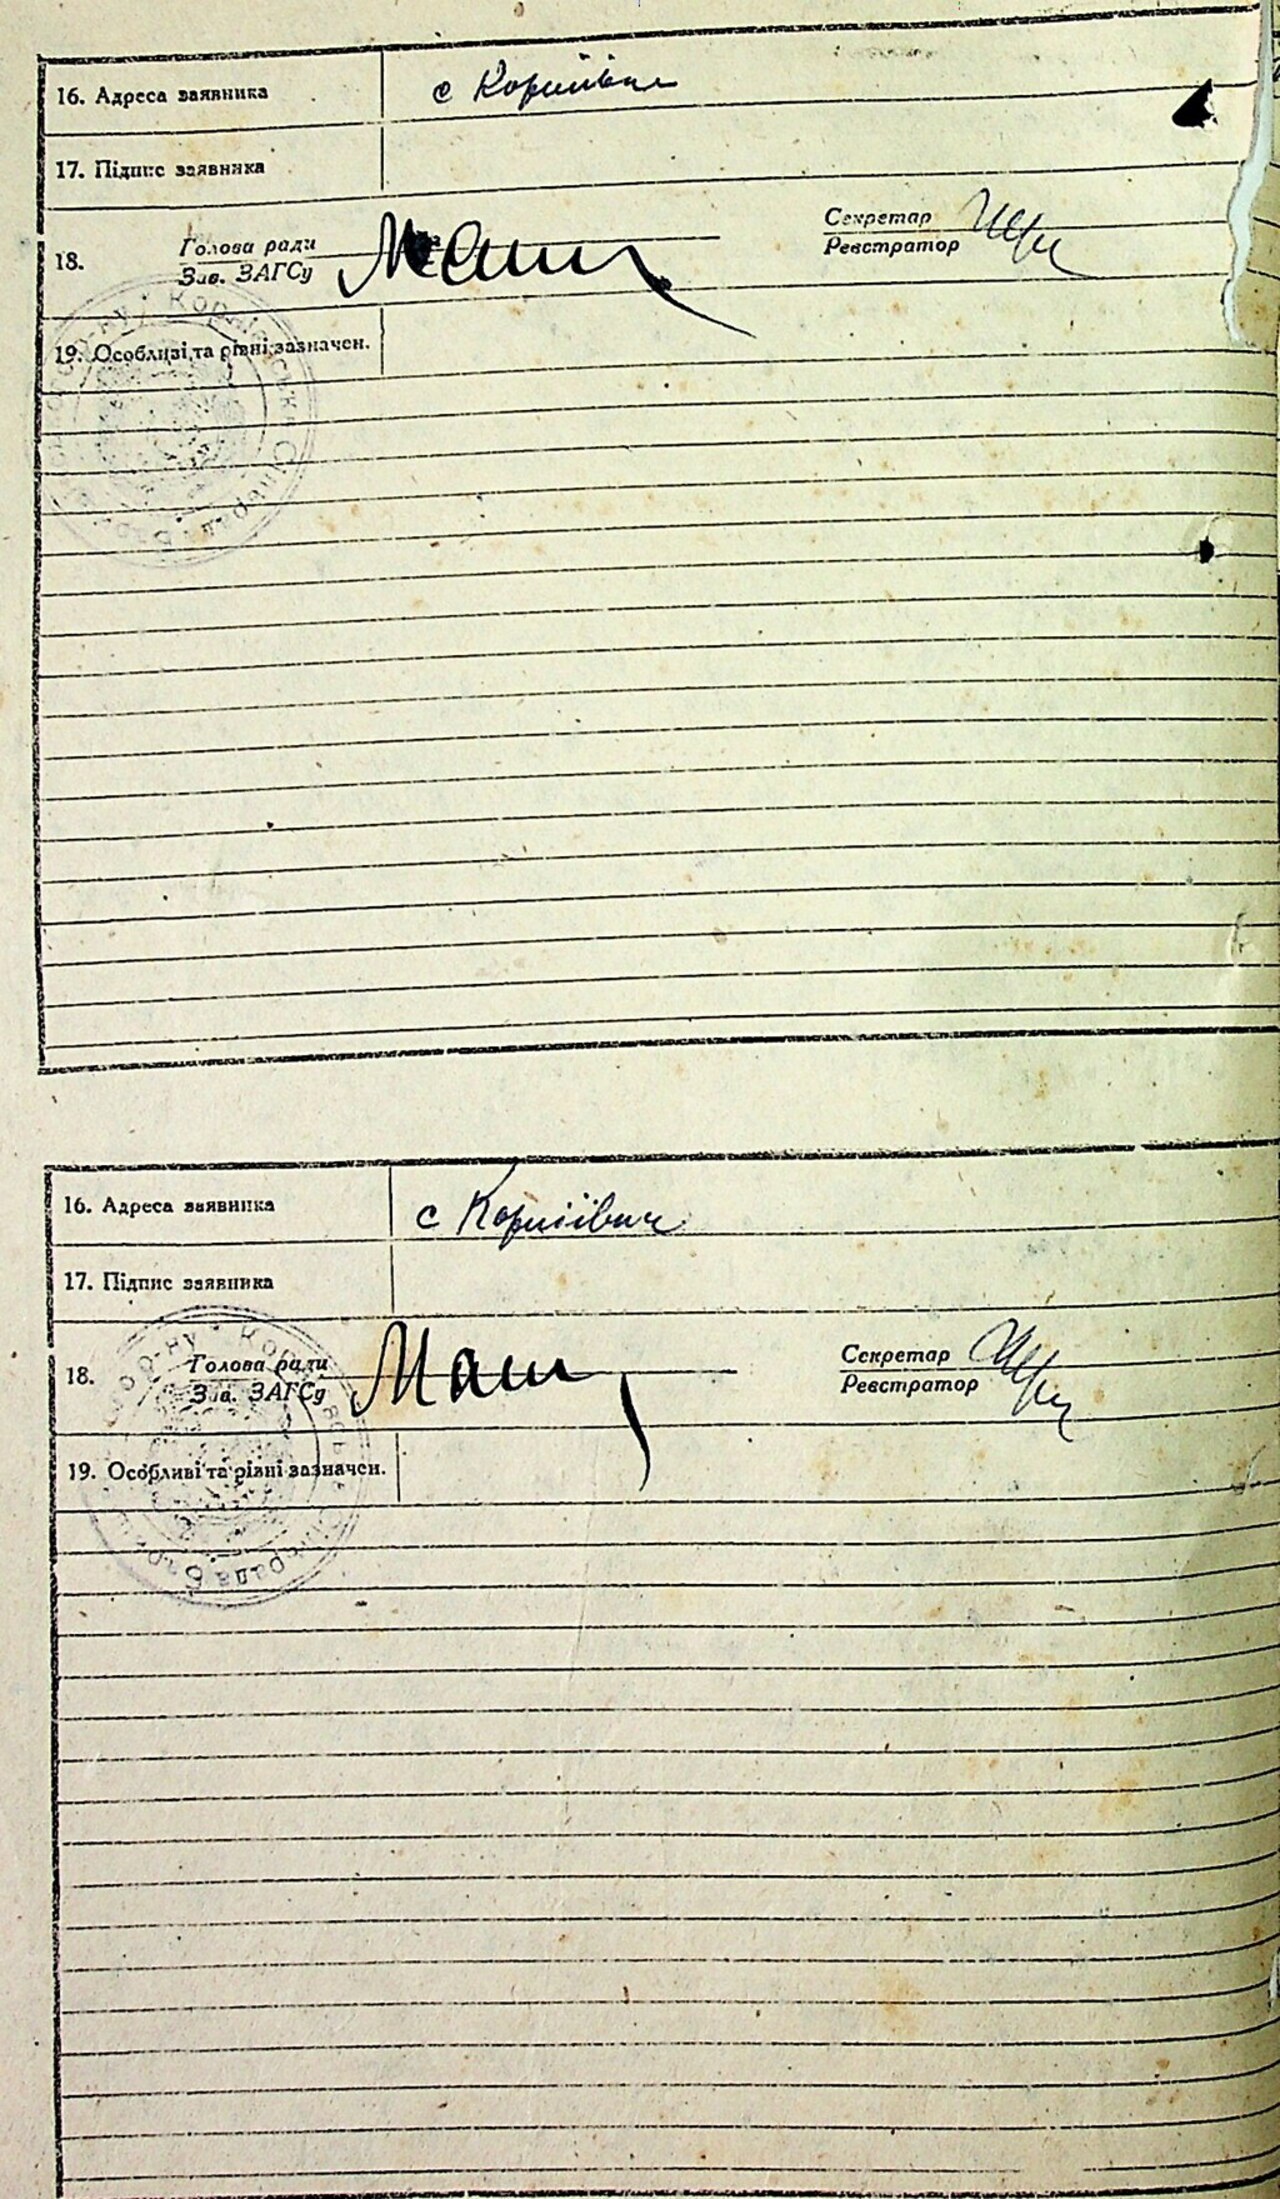 16. Адреса заявника
с Коріївка
17. Підпис заявника
18. Голова ради
Зав. ЗАГСу
Секретар
Реєстратор
19. Особливі та різні зазначен.
16. Адреса заявника
с
17. Підпис заявника
18. Голова ради
Зав. ЗАГСу
Секретар
Реєстратор
19. Особливі та різні зазначен.